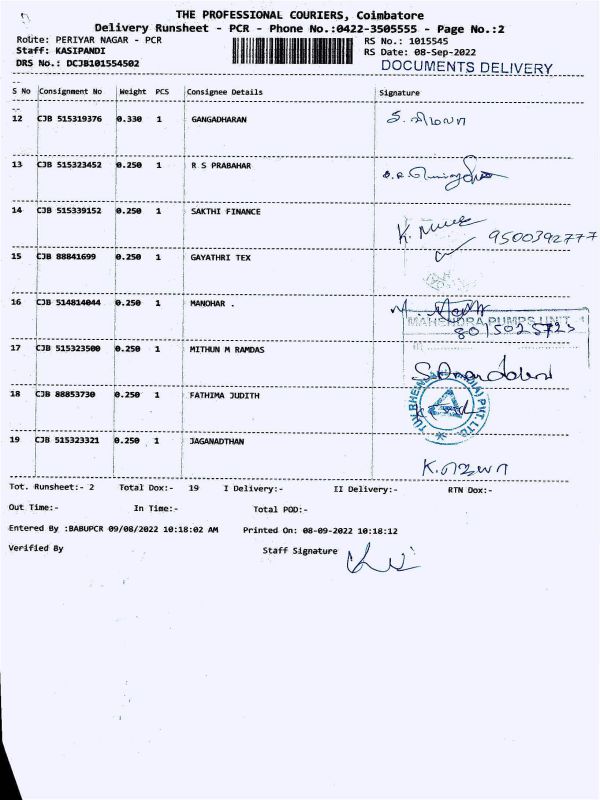 THE PROFESSIONAL COURIERS, Coimbatore
Delivery Runsheet - PCR - Phone No.:0422-3505555 - Page No.:2
Route: PERIYAR NAGAR - PCR
RS No.: 1015545
Staff: KASIPANDI
RS Date: 08-Sep-2022
DRS No.: DCJB101554502
DOCUMENTS DELIVERY
S No Consignment No Weight PCS Consignee Details Signature
12 CJB 515319376 0.330 1 GANGADHARAN
13 CJB 515323452 0.250 1 R S PRABAHAR
14 CJB 515339152 0.250 1 SAKTHI FINANCE
9500392777
15 CJB 88841699 0.250 1 GAYATHRI TEX
16 CJB 514814044 0.250 1 MANOHAR .
MAHENDRA PUMPS UNIT
17 CJB 515323500 0.250 1 MITHUN M RAMDAS
18 CJB 88853730 0.250 1 FATHIMA JUDITH
19 CJB 515323321 0.250 1 JAGANADTHAN
Tot. Runsheet:- 2 Total Dox:- 19 I Delivery:- II Delivery:- RTN Dox:-
Out Time:- In Time:- Total POD:-
Entered By :BABUPCR 09/08/2022 10:18:02 AM Printed On: 08-09-2022 10:18:12
Verified By Staff Signature